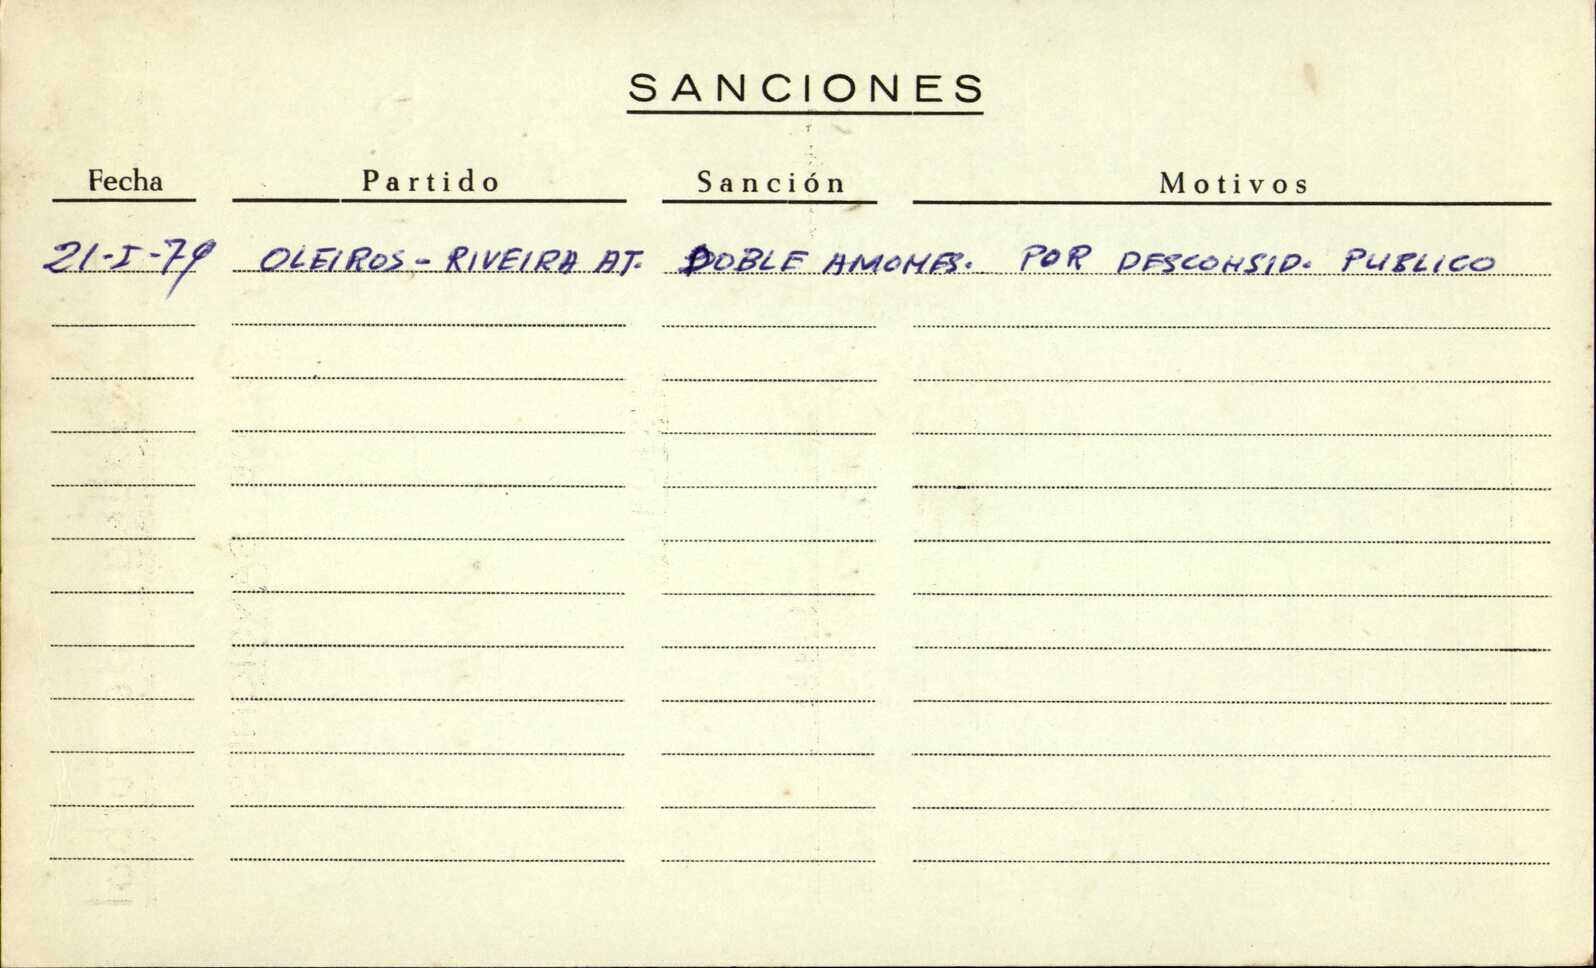 SANCIONES
Fecha Partido Sanción Motivos
21-I-79 OLEIROS - RIVEIRA AT. DOBLE AMONES. POR DESCONSID. PUBLICO